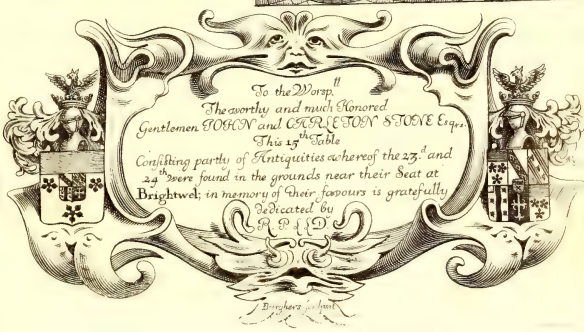 To the Worsp.ll
The worthy and much Honored
Gentlemen JOHN and CARLETON STONE Esqrs.
This 15th Table
Consisting partly of Antiquities whereof the 23.d and
24th were found in the grounds near their Seat at
Brightwel; in memory of their favours is gratefully
dedicated by
R. P. LLD
Burghers sculpsit